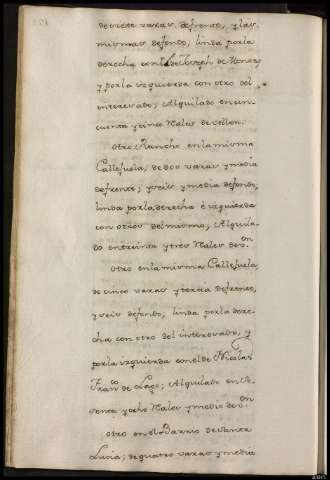 de siete varas de frente, y las
mismas de fondo, linda por la
derecha con el de Joseph de
y por la izquierda con otro del
interesado; Alquilado en cin-
cuenta y cinco Reales de vellon.
Otro Rancho en la misma
Callejuela, de dos varas y media
de frente; y seis y media de fondo,
linda por la derecha è izquierda
con otros del mismo, Alquila-
do en treinta y tres Reales de v.on
Otro en la misma Callejuela,
de cinco varas y tercia de frente,
y seis de fondo, linda por la dere-
cha con otro del interesado, y
por la izquierda con el de Nicolas
Fran.co de Lago; Alquilado en
senta y ocho Reales y medio de v.on
Otro en el Barrio de Santa
Lucia; de quatro varas y media